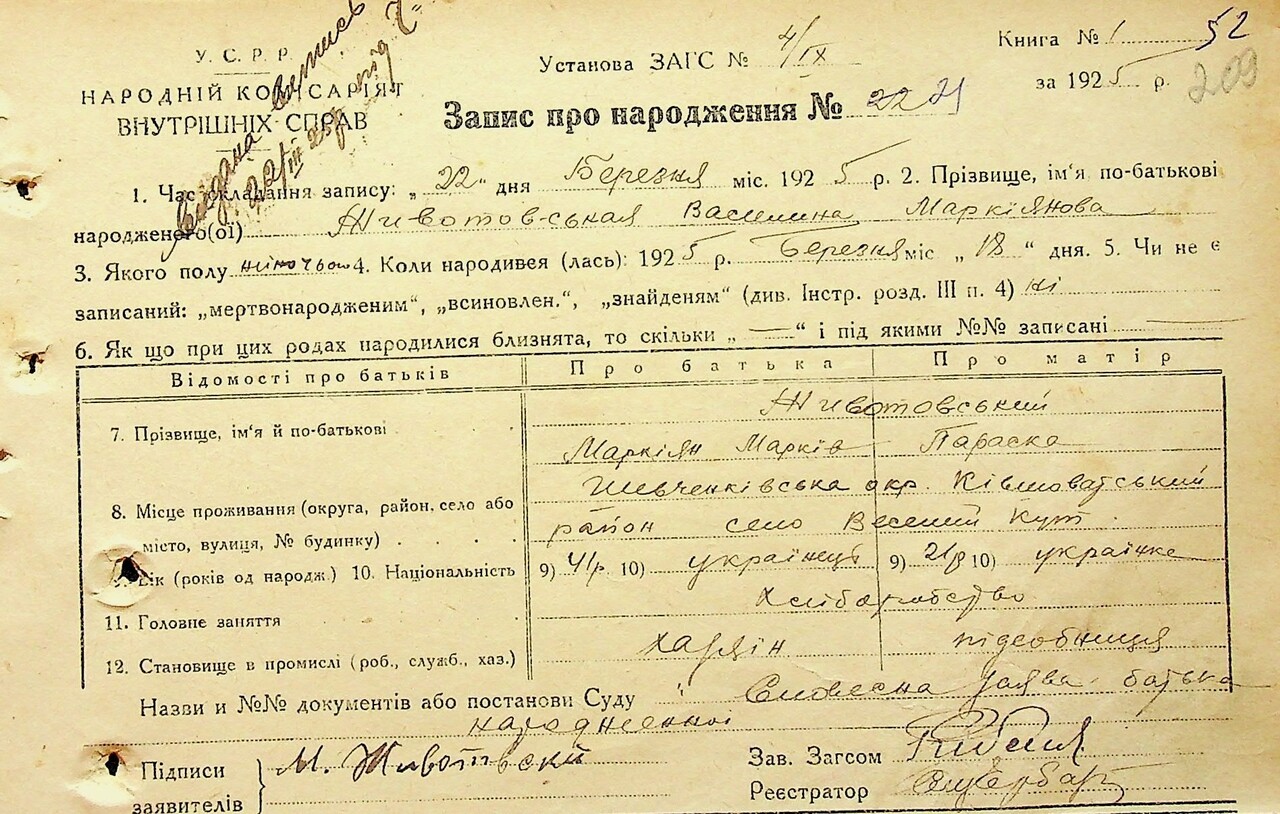 Видана витпись
22/III 25 р. під
У. С. Р. Р.
НАРОДНІЙ КОМІСАРІЯТ
ВНУТРІШНІХ СПРАВ
Установа ЗАГС № 4/IX
Книга № 1 52
за 1925 р. 209
Запис про народження № 22 21
1. Час складання запису: „22“ дня Березня міс. 1925 р. 2. Прізвище, ім'я по-батькові
народженого(ої) Животовськая Василина Маркіянова
3. Якого полу жіночьом 4. Коли народився (лась): 1925 р. Березня міс „18“ дня. 5. Чи не є
записаний: „мертвонародженим“, „всиновлен.“, „знайденям“ (див. Інстр. розд. III п. 4) ні
6. Як що при цих родах народилися близнята, то скільки „—“ і під якими №№ записані —
Відомості про батьків Про батька Про матір
7. Прізвище, ім'я й по-батькові Животовський
Маркіян Марків Параска
8. Місце проживання (округа, район, село або Шевченківська окр. Ківшоватський
місто, вулиця, № будинку) . . . . район село Веселий Кут.
Вік (років од народж.) 10. Національність 9) 41р 10) українець 9) 21р 10) українка
11. Головне заняття Хліборобство
12. Становище в промислі (роб., служб., хаз.) хазяін підсобниця
Назви и №№ документів або постанови Суду Словесна заява батька
народженної
Підписи М. Животовский Зав. Загсом
заявителів Реєстратор